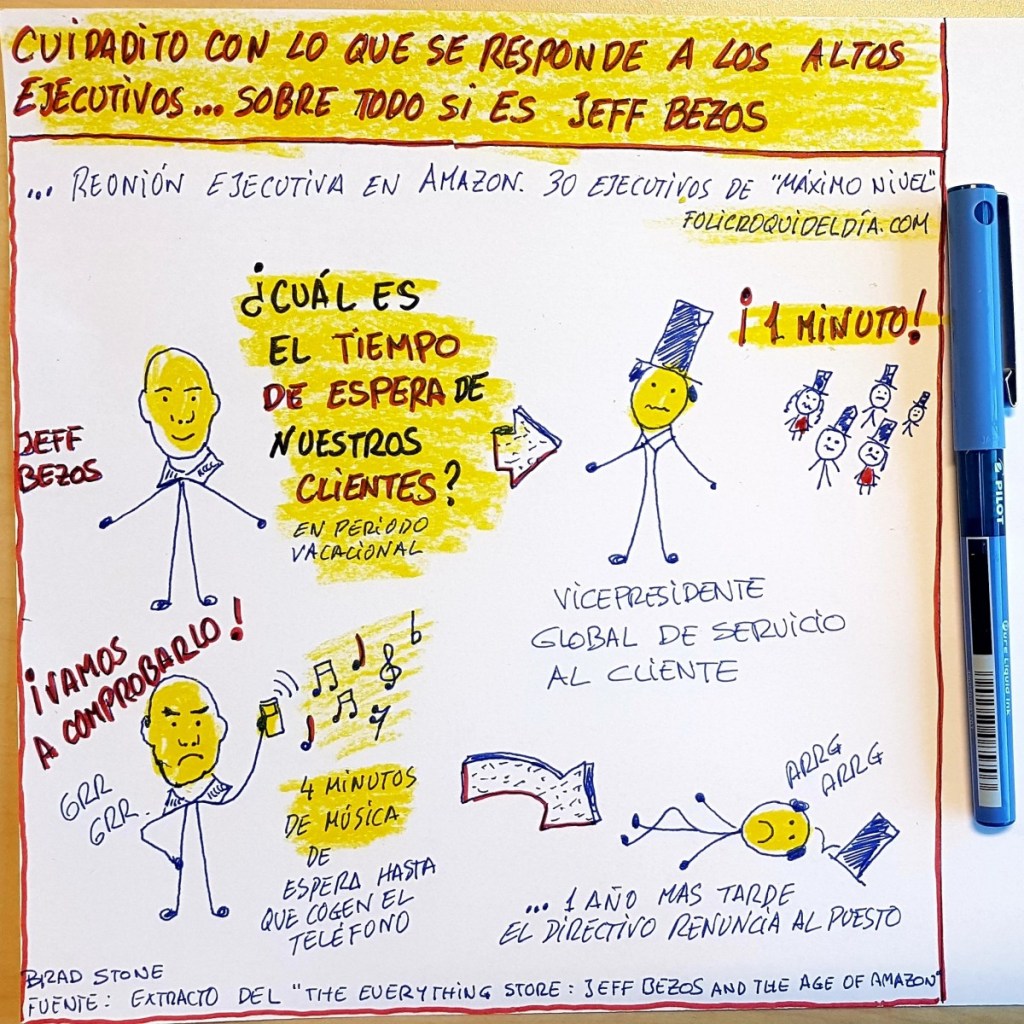 CUIDADITO CON LO QUE SE RESPONDE A LOS ALTOS
EJECUTIVOS... SOBRE TODO SI ES JEFF BEZOS
... REONIÓN EJECUTIVA EN AMAZON. 30 EJECUTIVOS DE "MÁXIMO NIVEL"
FOLICROQUIDELDÍA.COM
JEFF
BEZOS
¿CUÁL ES
EL TIEMPO
DE ESPERA DE
NUESTROS
CLIENTES?
EN PERIODO
VACACIONAL
¡1 MINUTO!
VICEPRESIDENTE
GLOBAL DE SERVICIO
AL CLIENTE
¡VAMOS
A COMPROBARLO!
GRR
GRR..
4 MINUTOS
DE MÚSICA
DE
ESPERA HASTA
QUE COGEN EL
TELÉFONO
ARRG
ARRG
... 1 AÑO MAS TARDE
EL DIRECTIVO RENUNCIA AL PUESTO
BRAD STONE
FUENTE: EXTRACTO DEL "THE EVERYTHING STORE: JEFF BEZOS AND THE AGE OF AMAZON"
PILOT
Pure Liquid Ink